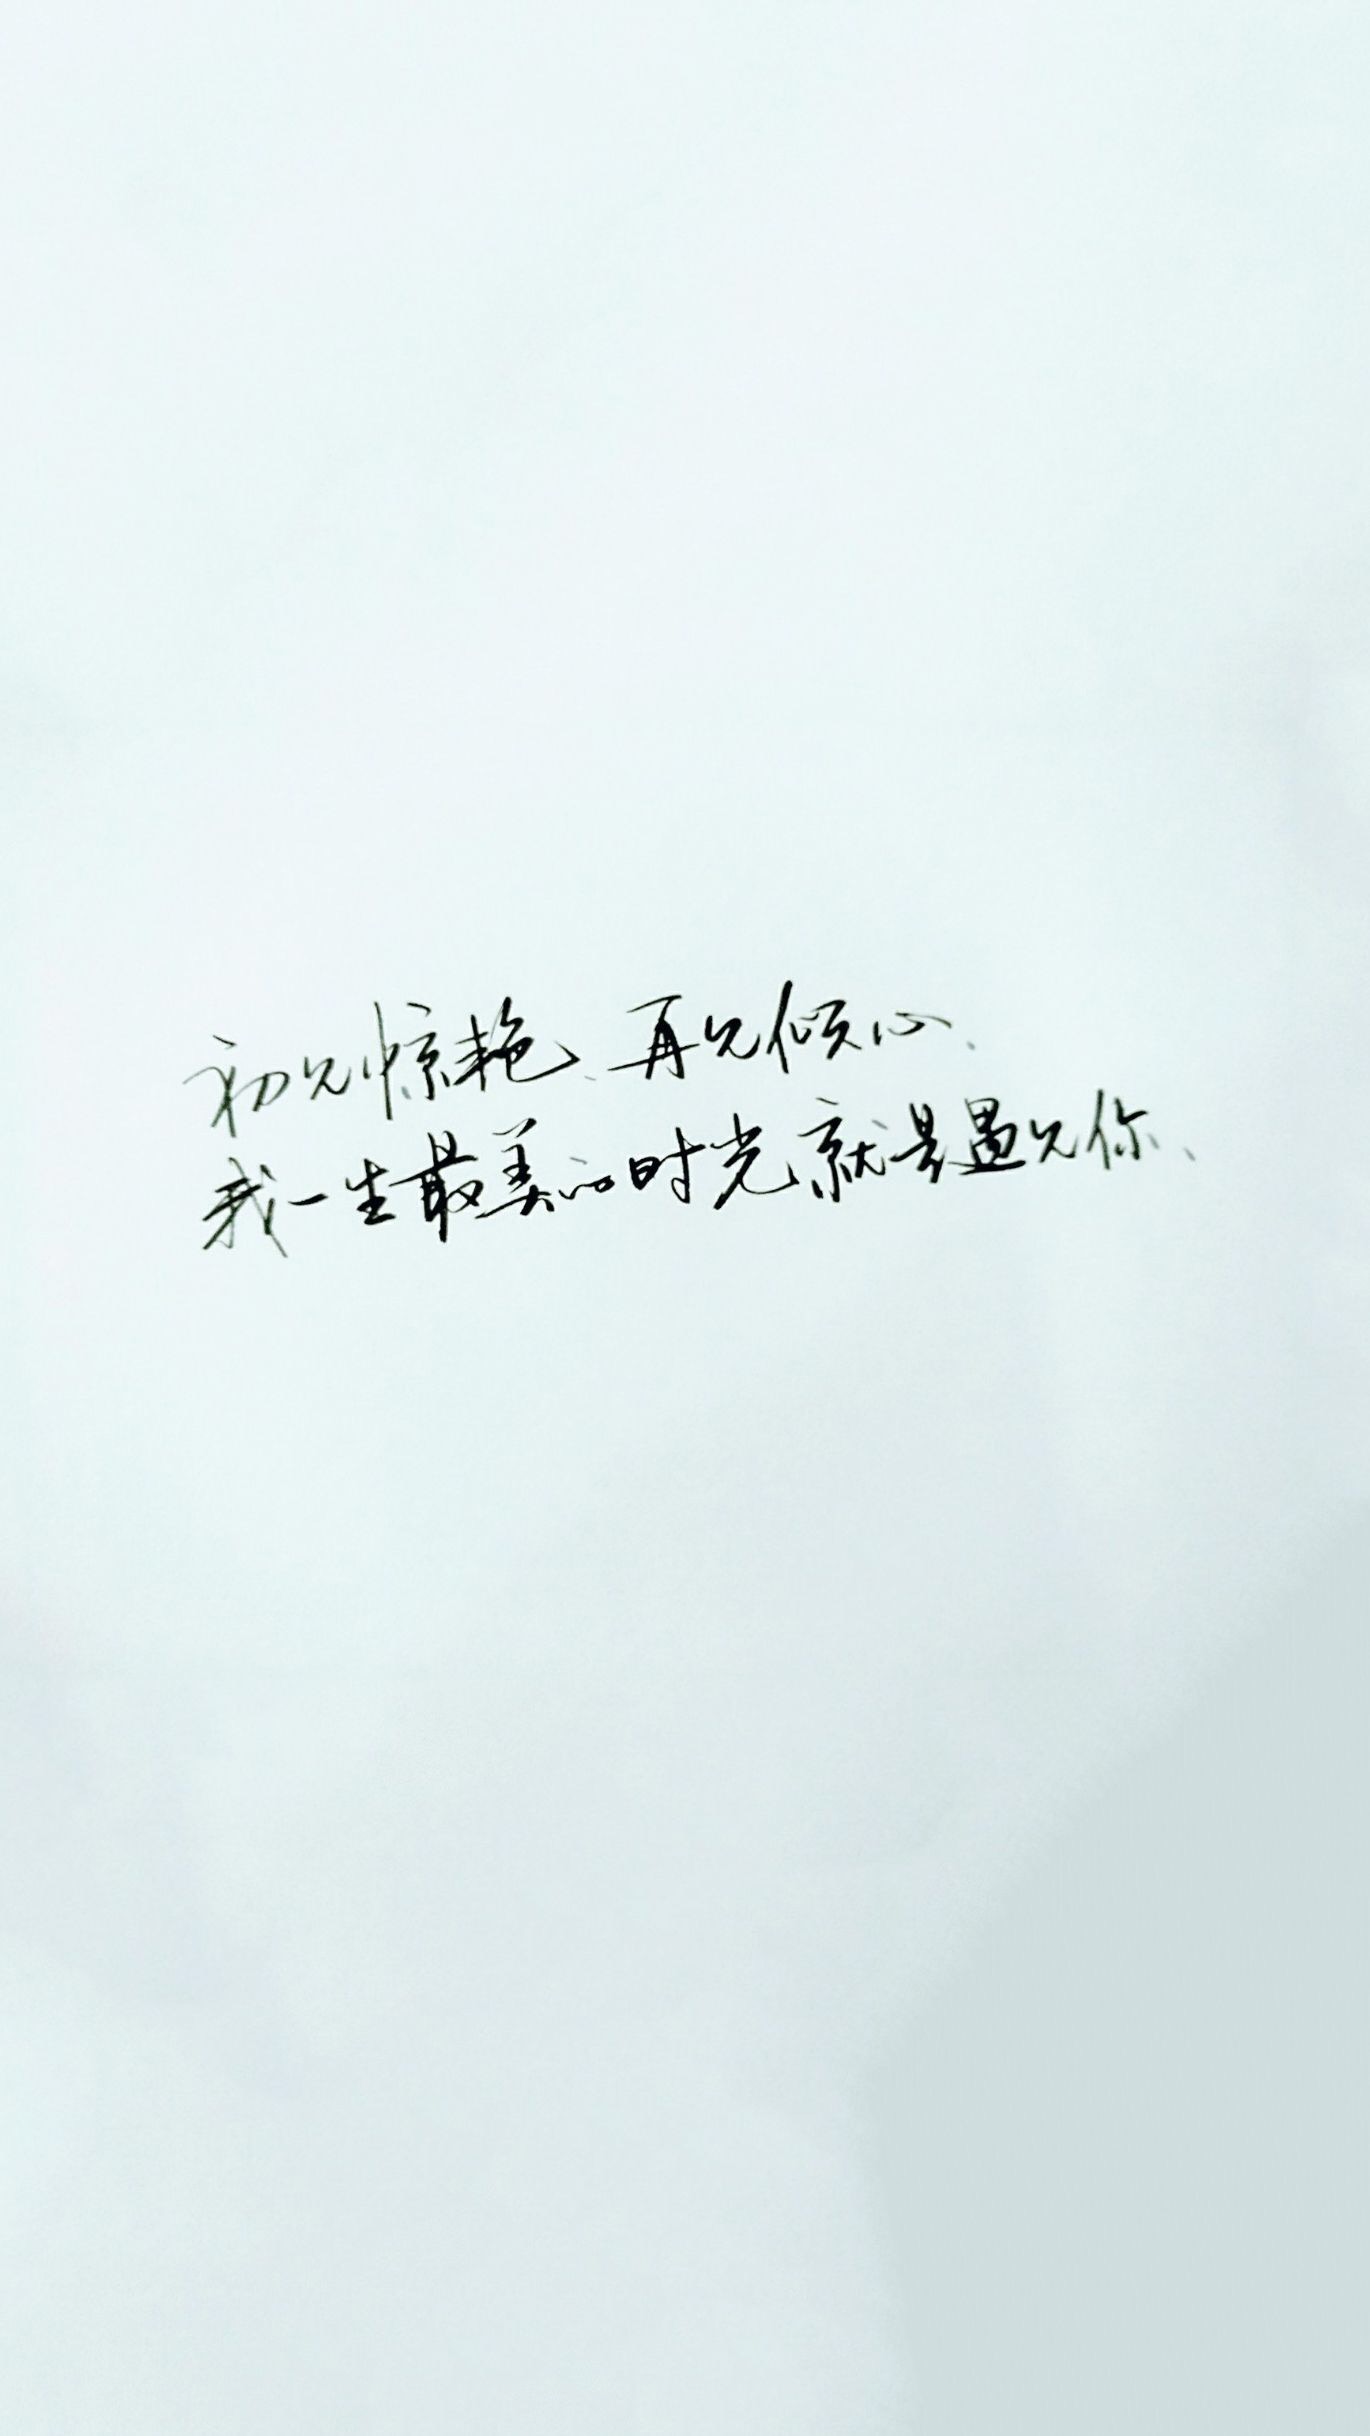 初见惊艳、再见倾心、
我一生最美的时光就是遇见你、